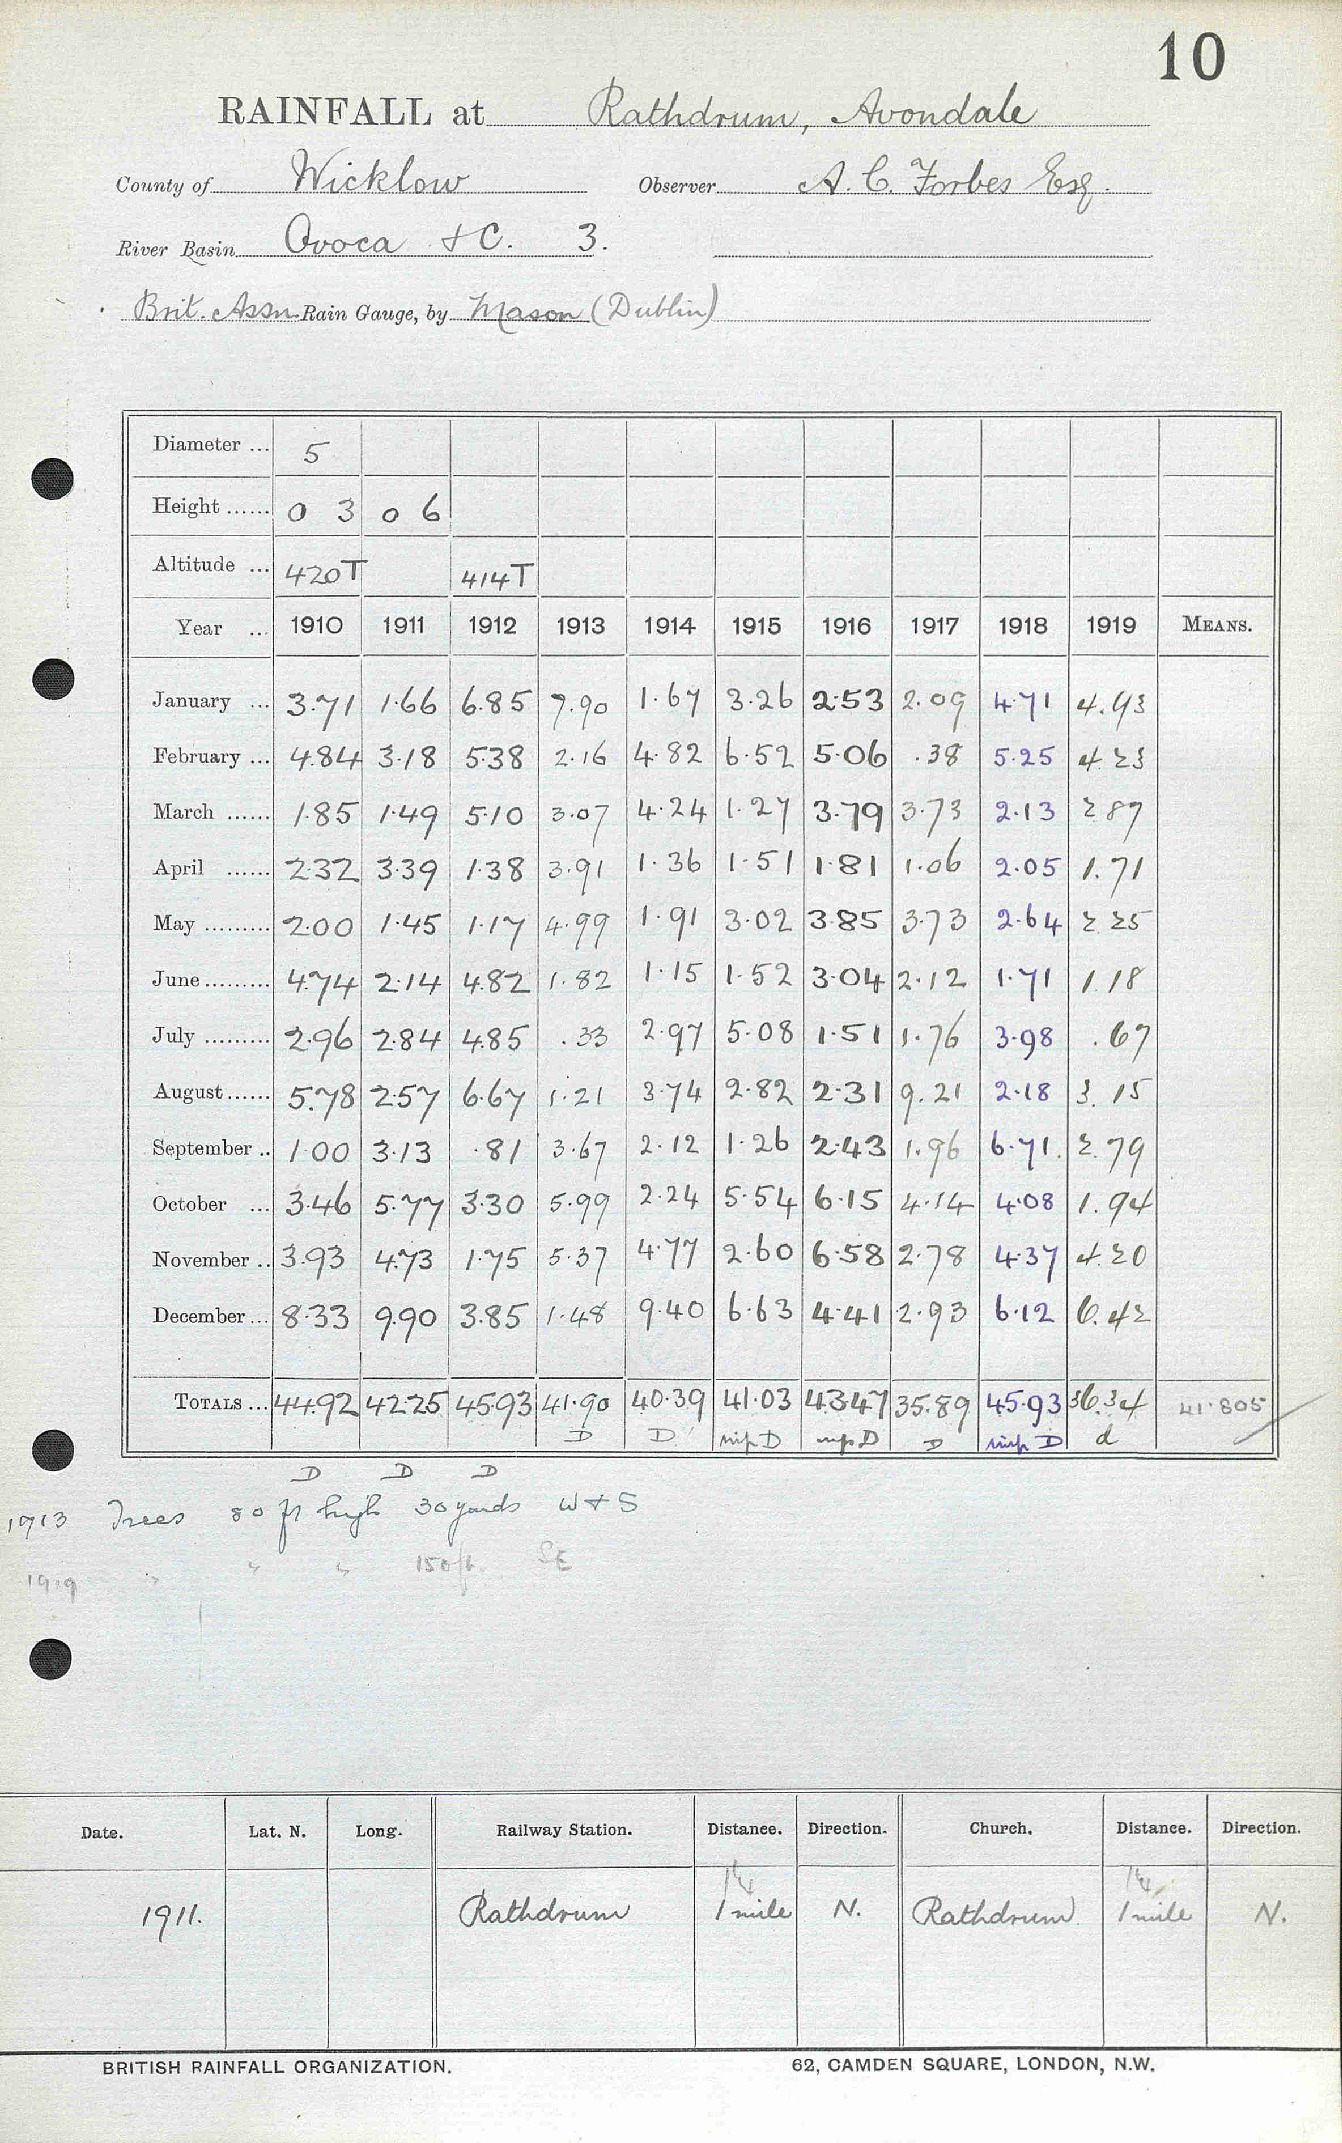 10
RAINFALL at Rathdrum, Avondale
County of Wicklow Observer A. C. Forbes Esq.
River Basin Ovoca & C. 3.
Brit. Assn Rain Gauge, by Mason (Dublin)
Diameter ... 5
Height ...... 0 3 0 6
Altitude ... 420T 414T
Year ... 1910 1911 1912 1913 1914 1915 1916 1917 1918 1919 MEANS.
January ... 3.71 1.66 6.85 7.90 1.67 3.26 2.53 2.09 4.71 4.93
February ... 4.84 3.18 5.38 2.16 4.82 6.52 5.06 .38 5.25 4.23
March ...... 1.85 1.49 5.10 3.07 4.24 1.27 3.79 3.73 2.13 2.87
April ...... 2.32 3.39 1.38 3.91 1.36 1.51 1.81 1.06 2.05 1.71
May ......... 2.00 1.45 1.17 4.99 1.91 3.02 3.85 3.73 2.64 2.25
June ......... 4.74 2.14 4.82 1.82 1.15 1.52 3.04 2.12 1.71 1.18
July ......... 2.96 2.84 4.85 .33 2.97 5.08 1.51 1.76 3.98 .67
August ...... 5.78 2.57 6.67 1.21 3.74 2.82 2.31 9.21 2.18 3.15
September .. 1.00 3.13 .81 3.67 2.12 1.26 2.43 1.96 6.71 2.79
October ... 3.46 5.77 3.30 5.99 2.24 5.54 6.15 4.14 4.08 1.94
November .. 3.93 4.73 1.75 5.37 4.77 2.60 6.58 2.78 4.37 4.20
December ... 8.33 9.90 3.85 1.48 9.40 6.63 4.41 2.93 6.12 6.42
TOTALS ... 44.92 42.25 45.93 41.90 40.39 41.03 43.47 35.89 45.93 36.34 41.805
D D D D D D d
D D D
1913 Trees 80 ft high 30 yards W & S
1919 " " " 150 ft. SE
Date. Lat. N. Long. Railway Station. Distance. Direction. Church. Distance. Direction.
1¼ 1¼
1911. Rathdrum 1 mile N. Rathdrum 1 mile N.
BRITISH RAINFALL ORGANIZATION. 62, CAMDEN SQUARE, LONDON, N.W.